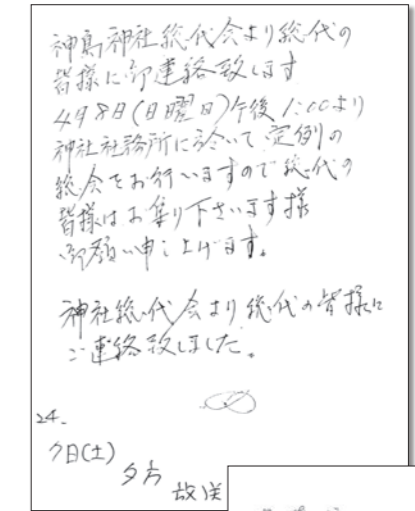 神島神社総代会より総代の
皆様に御連絡致します
4月8日(日曜日)午後1:00より
神社社務所に於いて定例の
総会をお行いますので総代の
皆様はお集り下さいます様
御願い申し上げます。
神社総代会より総代の皆様に
ご連絡致しました。
24.
7日(土)
夕方
放送